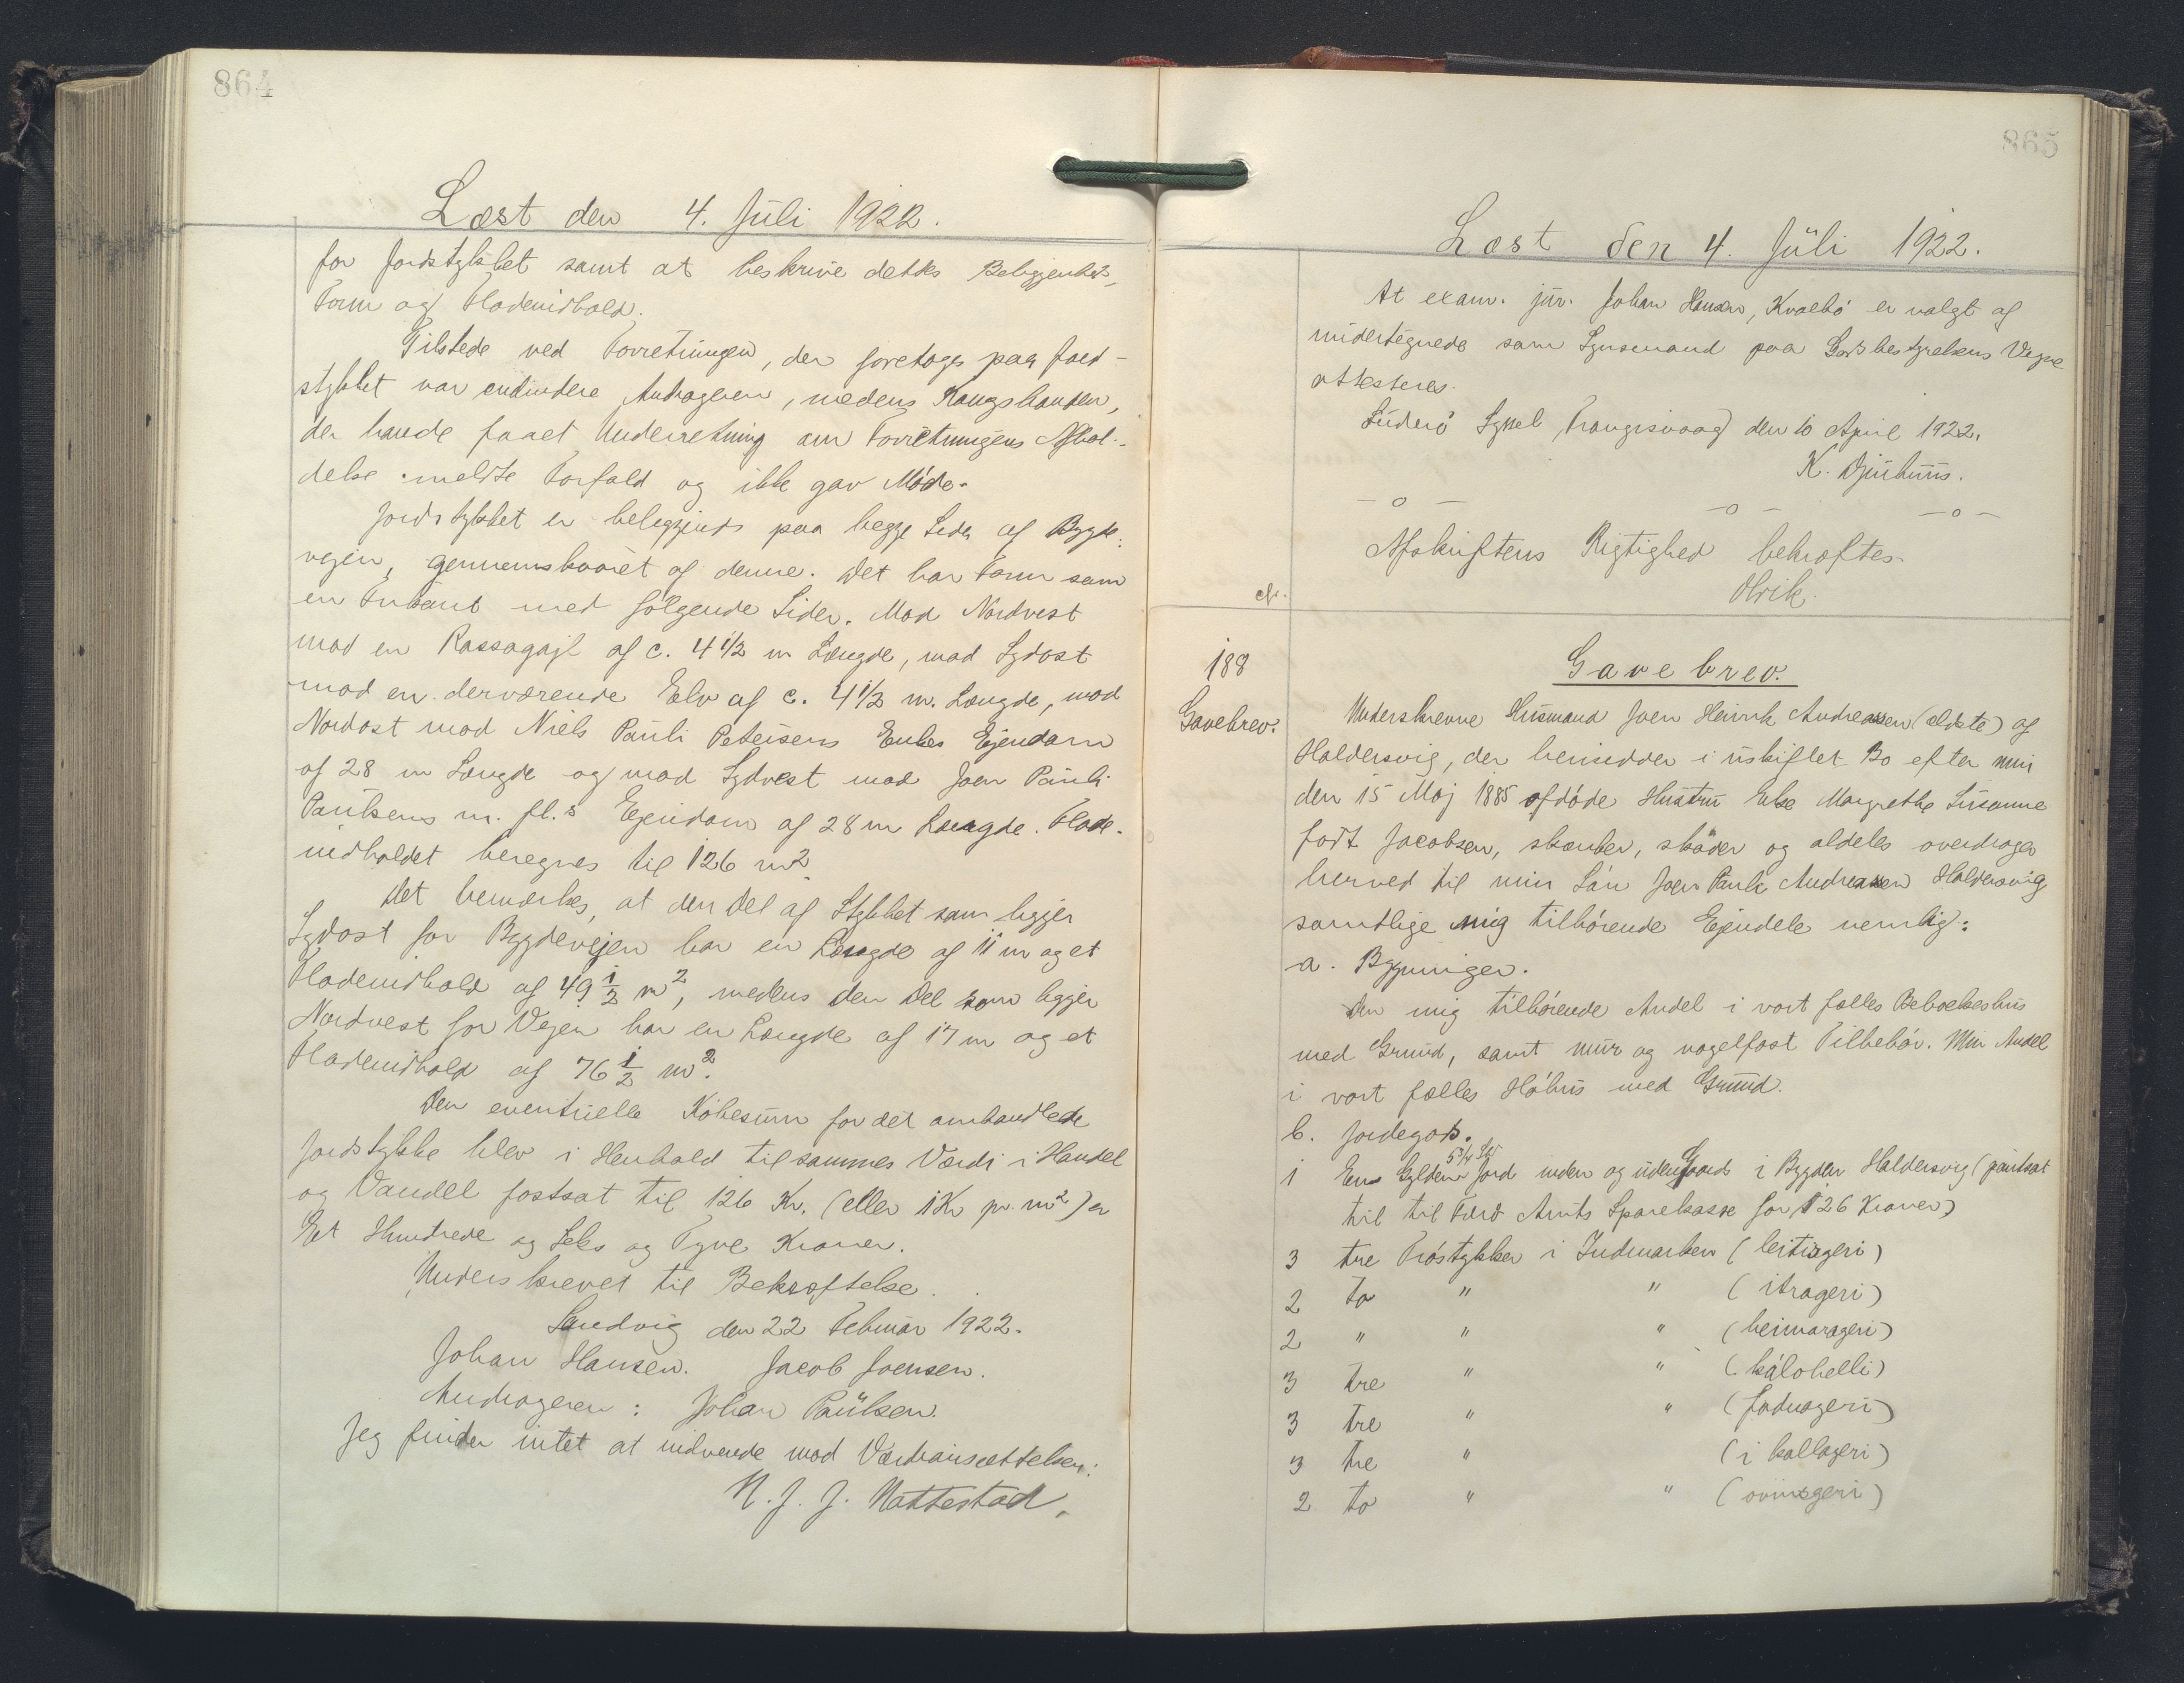 864
Læst den 4. Juli 1922.
for Jordstykket samt at beskrive dettes Beliggenhed,
Form og Fladeindhold.
Tilstede ved Forretningen, der foretoges paa Jord-
stykket var endvidere Andrageren, medens Kongsbonden,
der havde faaet Underretning om Forretningens Afhol-
delse meldte Forfald og ikke gav Møde.
Jordstykket er beliggende paa begge Sider af Bygde-
vejen, gennemskaaret af denne. Det har Form som
en Firkant med følgende Sider. Mod Nordvest
mod en Rassagajl af c. 4 1/2 m Længde, mod Sydost
mod en derværende Elv af c. 4 1/2 m. Længde, mod
Nordost mod Niels Pauli Petersens Enkes Ejendom
af 28 m Længde og mod Sydvest mod Joen Pauli
Paulsens m. fl.s Ejendom af 28 m Længde. Flade-
indholdet beregnes til 126 m2.
Det bemærkes, at den Del af Stykket som ligger
Sydost for Bygdevejen har en Længde af 11 m og et
Fladeindhold af 49 1/2 m2, medens den Del som ligger
Nordvest for Vejen har en Længde af 17 m og et
Fladeindhold af 76 1/2 m2.
Den eventuelle Købesum for det omhandlede
Jordstykke blev i Henhold til sammes Værdi i Handel
og Vandel fastsat til 126 Kr. (eller 1 Kr pr. m2) er
Et Hundrede og Seks og Tyve Kroner.
Underskrevet til Bekræftelse.
Sandvig den 22 Februar 1922.
Johan Hansen. Jacob Joensen.
Andrageren: Johan Paulsen.
Jeg finder intet at indvende mod Værdiansættelsen:
N. J. J. Nattestad.
865
Læst den 4. Juli 1922.
At exam. jur. Johan Hansen, Kvalbø er valgt af
undertegnede som Synsmand paa Godsbestyrelsens Vegne
attesteres.
Suderø Syssel, Trangisvaag den 10 April 1922.
K. Djurhuus.
-o- -o- -o-
Afskriftens Rigtighed bekræftes.
Olrik.
188
Gavebrev.
Gavebrev.
Underskrevne Husmand Joen Heinrik Andreassen (ældste) af
Haldersvig, der hensidder i uskiftet Bo efter min
den 15 Maj 1885 afdøde Hustru Else Margrethe Susanne
født Jacobsen, skænker, skøder og aldeles overdrager
herved til min Søn Joen Pauli Andreassen Haldersvig
samtlige mig tilhørende Ejendele nemlig:
a. Bygninger.
Den mig tilhørende Andel i vort fælles Beboelseshus
med Grund, samt mur og nagelfast Tilbehør. Min Andel
i vort fælles Høhus med Grund.
b. Jordegods.
5 3/4 Sk
1 En Gylden Jord inden og udengaards i Bygden Haldersvig (pantsat
til til Færø Amts Sparekasse for 126 Kroner)
3 tre Trøstykker i Indmarken (leitisgeri)
2 to " " (itrageri)
2 " " " (heimarageri)
3 tre " " (kálohelli)
3 tre " " (fodnageri)
3 tre " (i kallageri)
2 to " " (ovinsgeri)